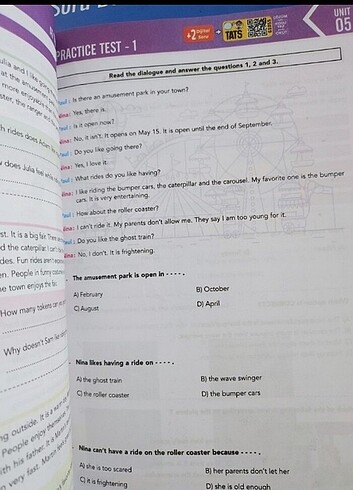 UNIT
05
PRACTICE TEST - 1
+2 Dijital Soru
TATS
Read the dialogue and answer the questions 1, 2 and 3.
: Is there an amusement park in your town?
Nina: Yes, there is.
: Is it open now?
Nina: No, it isn't. It opens on May 15. It is open until the end of September.
: Do you like going there?
Nina: Yes, I love it.
: What rides do you like having?
Nina: I like riding the bumper cars, the caterpillar and the carousel. My favorite one is the bumper
cars. It is very entertaining.
: How about the roller coaster?
Nina: I can't ride it. My parents don't allow me. They say I am too young for it.
: Do you like the ghost train?
Nina: No, I don't. It is frightening.
The amusement park is open in - - - - .
A) February
B) October
C) August
D) April
Nina likes having a ride on - - - - .
A) the ghost train
B) the wave swinger
C) the roller coaster
D) the bumper cars
Nina can't have a ride on the roller coaster because - - - - .
A) she is too scared
B) her parents don't let her
C) it is frightening
D) she is old enough
ulia and I like going
at the amusement
more enjoyable
h rides does
does Julia feel
st. It is a big fair.
d the caterpillar. I can't
des. Fun rides aren't
en. People in funny
e town enjoy the fair.
How many tokens can
Why doesn't Sam
ng outside. It is a
People enjoy
ith his father. It is
n very fast. Martin